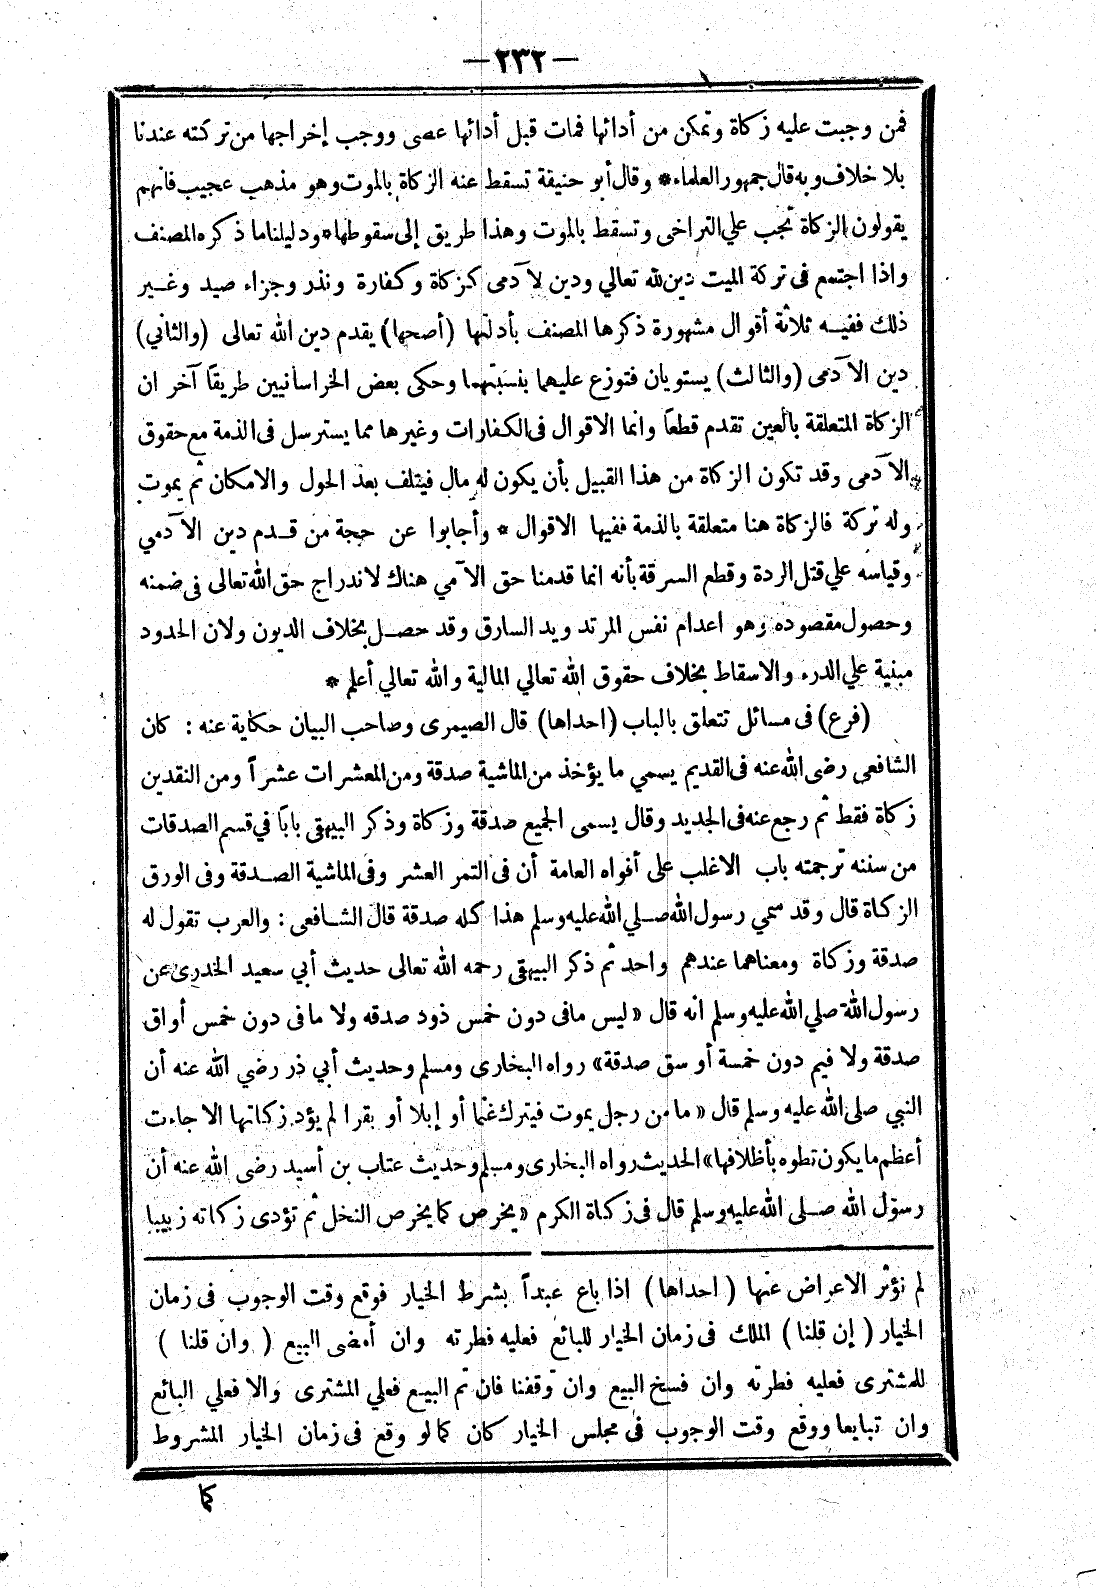 — ٢٣٢ —
فمن وجبت عليه زكاة وتمكن من أدائها فمات قبل أدائها عصى ووجب إخراجها من تركته عندنا
بلا خلاف وبه قال جمهور العلماء* وقال أبو حنيفة تسقط عنه الزكاة بالموت وهو مذهب عجيب فانهم
يقولون الزكاة تجب علي التراخى وتسقط بالموت وهذا طريق إلى سقوطها* ودليلنا ما ذكره المصنف
واذا اجتمع فى تركة الميت دين لله تعالي ودين لآدمى كزكاة وكفارة ونذر وجزاء صيد وغير
ذلك ففيه ثلاثة أقوال مشهورة ذكرها المصنف بأدلتها (أصحها) يقدم دين الله تعالى (والثاني)
دين الآدمى (والثالث) يستويان فتوزع عليهما بنسبتهما وحكى بعض الخراسانيين طريقاً آخر ان
الزكاة المتعلقة بالعين تقدم قطعاً وانما الاقوال فى الكفارات وغيرها مما يسترسل فى الذمة مع حقوق
الآدمى وقد تكون الزكاة من هذا القبيل بأن يكون له مال فيتلف بعد الحول والامكان ثم يموت
وله تركة فالزكاة هنا متعلقة بالذمة ففيها الاقوال * وأجابوا عن حجة من قدم دين الآدمي
وقياسه علي قتل الردة وقطع السرقة بأنه انما قدمنا حق الآمي هناك لاندراج حق الله تعالى فى ضمنه
وحصول مقصوده وهو اعدام نفس المرتد ويد السارق وقد حصل بخلاف الديون ولان الحدود
مبنية علي الدرء والاسقاط بخلاف حقوق الله تعالي المالية والله تعالي أعلم *
(فرع) فى مسائل تتعلق بالباب (احداها) قال الصيمرى وصاحب البيان حكاية عنه : كان
الشافعى رضى الله عنه فى القديم يسمي ما يؤخذ من الماشية صدقة ومن المعشرات عشراً ومن النقدين
زكاة فقط ثم رجع عنه فى الجديد وقال يسمى الجميع صدقة وزكاة وذكر البيهقى باباً في قسم الصدقات
من سننه ترجمته باب الاغلب على أفواه العامة أن فى التمر العشر وفى الماشية الصدقة وفى الورق
الزكاة قال وقد سمي رسول الله صلي الله عليه وسلم هذا كله صدقة قال الشافعى : والعرب تقول له
صدقة وزكاة ومعناهما عندهم واحد ثم ذكر البيهقى رحمه الله تعالى حديث أبي سعيد الخدرى عن
رسول الله صلي الله عليه وسلم انه قال «ليس مافى دون خمس ذود صدقه ولا مافى دون خمس أواق
صدقة ولا فيم دون خمسة أوسق صدقة» رواه البخارى ومسلم وحديث أبي ذر رضي الله عنه أن
النبي صلى الله عليه وسلم قال «ما من رجل يموت فيترك غنما أو إبلا أو بقرا لم يؤد زكاتها الا جاءت
أعظم ما يكون تطوه بأظلافها» الحديث رواه البخارى ومسلم وحديث عتاب بن أسيد رضى الله عنه أن
رسول الله صلى الله عليه وسلم قال فى زكاة الكرم «يخرص كما يخرص النخل ثم تؤدى زكاته زبيبا
لم نؤثر الاعراض عنها ( احداها ) اذا باع عبداً بشرط الخيار فوقع وقت الوجوب فى زمان
الخيار ( إن قلنا ) الملك فى زمان الخيار للبائع فعليه فطرته وان أمضى البيع ( وان قلنا )
للمشترى فعليه فطرته وان فسخ البيع وان توقفنا فان تم البيع فعلي المشترى والا فعلي البائع
وان تبايعا ووقع وقت الوجوب فى مجلس الخيار كان كما لو وقع فى زمان الخيار المشروط
كما